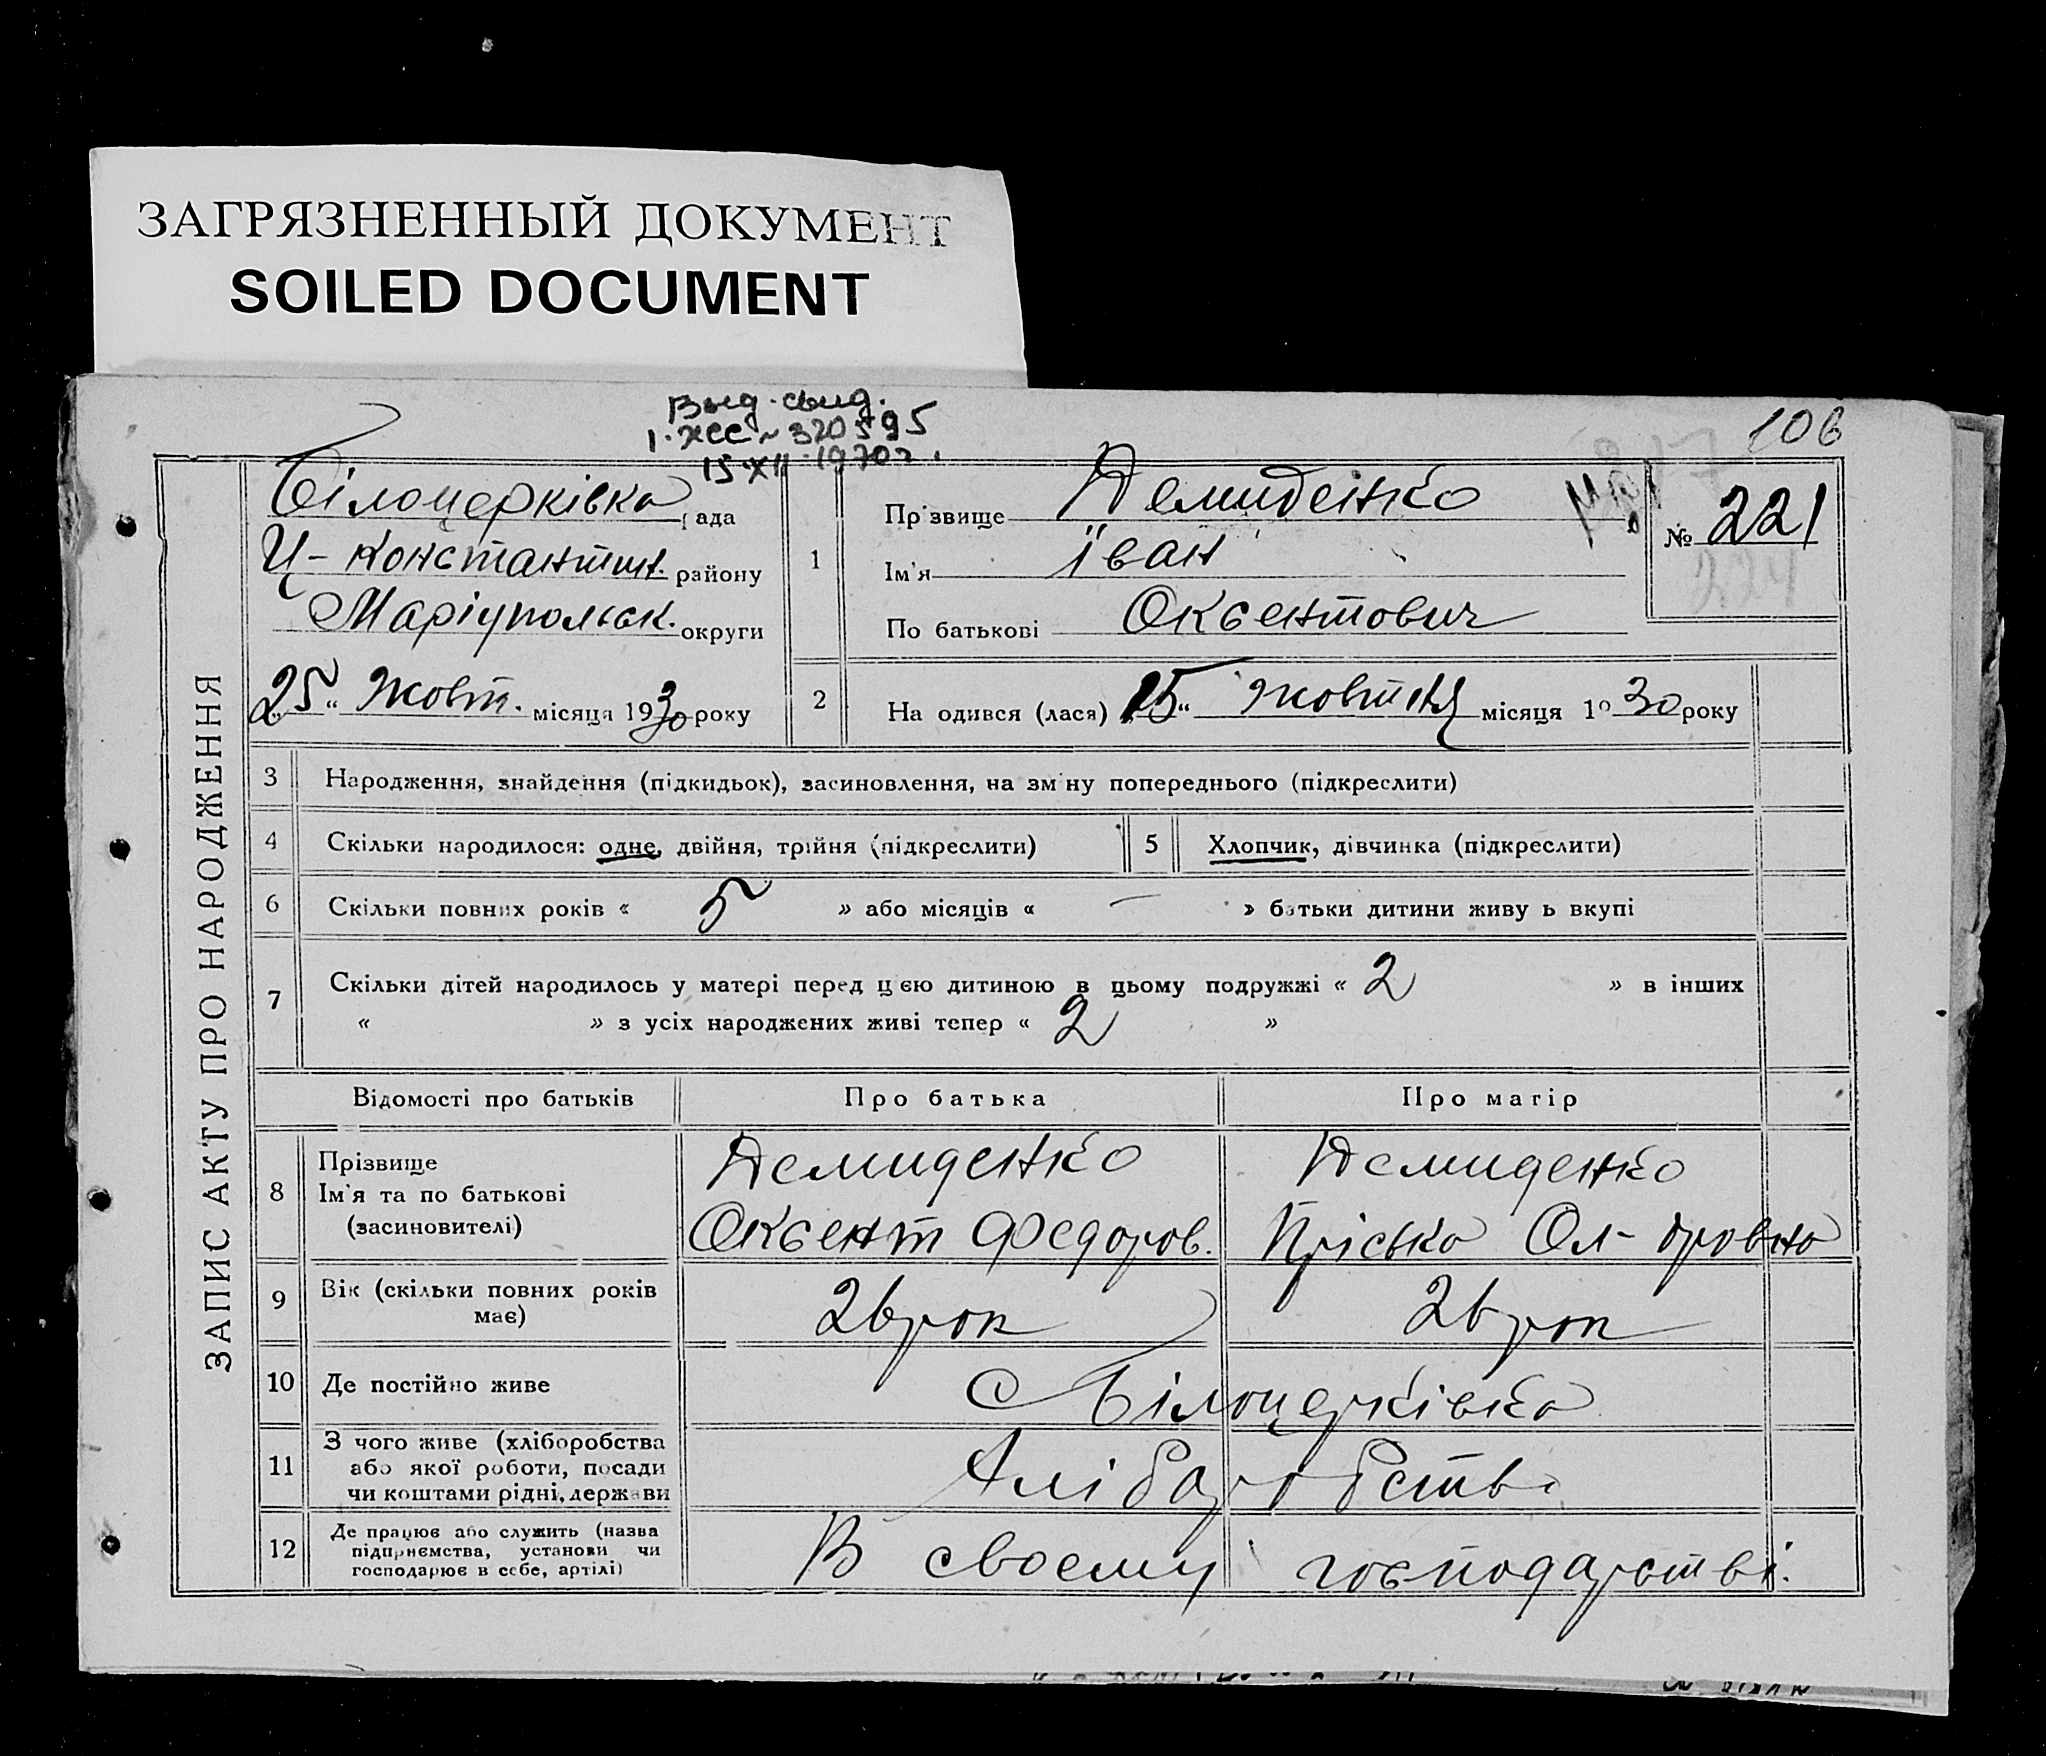 ЗАГРЯЗНЕННЫЙ ДОКУМЕНТ
SOILED DOCUMENT
Выд. свид.
I-ЖСС № 320595
15.XII.1970г.
106
ЗАПИС АКТУ ПРО НАРОДЖЕННЯ
Білоцерківка рада
Ц-Константин. району
Маріупольск. округи
25 „ Жовт. місяця 1930 року
1
Прізвище Демиденко
Ім'я Іван
По батькові Оксентович
№ 221
224
2
Народився (лася) 15 „ Жовтня місяця 1930 року
3 Народження, знайдення (підкидьок), засиновлення, на зміну попереднього (підкреслити)
4 Скільки народилося: одне, двійня, трійня (підкреслити)
5 Хлопчик, дівчинка (підкреслити)
6 Скільки повних років « 5 » або місяців « — » батьки дитини живуть вкупі
7 Скільки дітей народилось у матері перед цією дитиною в цьому подружжі « 2 » в інших
« » з усіх народжених живі тепер « 2 »
Відомості про батьків Про батька Про матір
8 Прізвище
Ім'я та по батькові
(засиновителі)
Демиденко
Оксент Федоров.
Демиденко
Пріська Ол-дровна
9 Вік (скільки повних років
має)
26 рок 26 рок
10 Де постійно живе С Білоцерківка
11 З чого живе (хліборобства
або якої роботи, посади
чи коштами рідні, держави
Хліборобство
12 Де працює або служить (назва
підприємства, установи чи
господарює в себе, артілі)
В своєму господарстві.